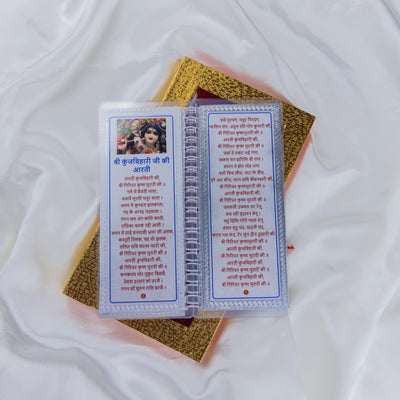 श्री कुंजबिहारी जी की
आरती
आरती कुंजबिहारी की,
श्री गिरिधर कृष्ण मुरारी की ॥
गले में बैजंती माला,
बजावै मुरली मधुर बाला।
श्रवण में कुण्डल झलकाला,
नंद के आनंद नंदलाला।
गगन सम अंग कांति काली,
राधिका चमक रही आली।
लतन में ठाढ़े बनमाली भ्रमर सी अलक,
कस्तूरी तिलक, चंद्र सी झलक,
ललित छवि श्यामा प्यारी की,
श्री गिरिधर कृष्ण मुरारी की ॥
आरती कुंजबिहारी की,
श्री गिरिधर कृष्ण मुरारी की ॥
कनकमय मोर मुकुट बिलसै,
देवता दरसन को तरसैं।
गगन सों सुमन रासि बरसै।
बजे मुरचंग, मधुर मिरदंग,
ग्वालिन संग, अतुल रति गोप कुमारी की,
श्री गिरिधर कृष्णमुरारी की ॥
आरती कुंजबिहारी की,
श्री गिरिधर कृष्ण मुरारी की ॥
जहां ते प्रकट भई गंगा,
सकल मन हारिणि श्री गंगा।
स्मरन ते होत मोह भंगा
बसी शिव सीस, जटा के बीच,
हरै अघ कीच, चरन छवि श्रीबनवारी की,
श्री गिरिधर कृष्णमुरारी की ॥
आरती कुंजबिहारी की,
श्री गिरिधर कृष्ण मुरारी की ॥
चमकती उज्ज्वल तट रेनू,
बज रही वृंदावन बेनू।
चहुं दिसि गोपि ग्वाल धेनू
हंसत मृदु मंद, चांदनी चंद,
कटत भव फंद, टेर सुन दीन दुखारी की,
श्री गिरिधर कृष्णमुरारी की ॥
आरती कुंजबिहारी की,
श्री गिरिधर कृष्ण मुरारी की ॥
आरती कुंजबिहारी की,
श्री गिरिधर कृष्ण मुरारी की ॥